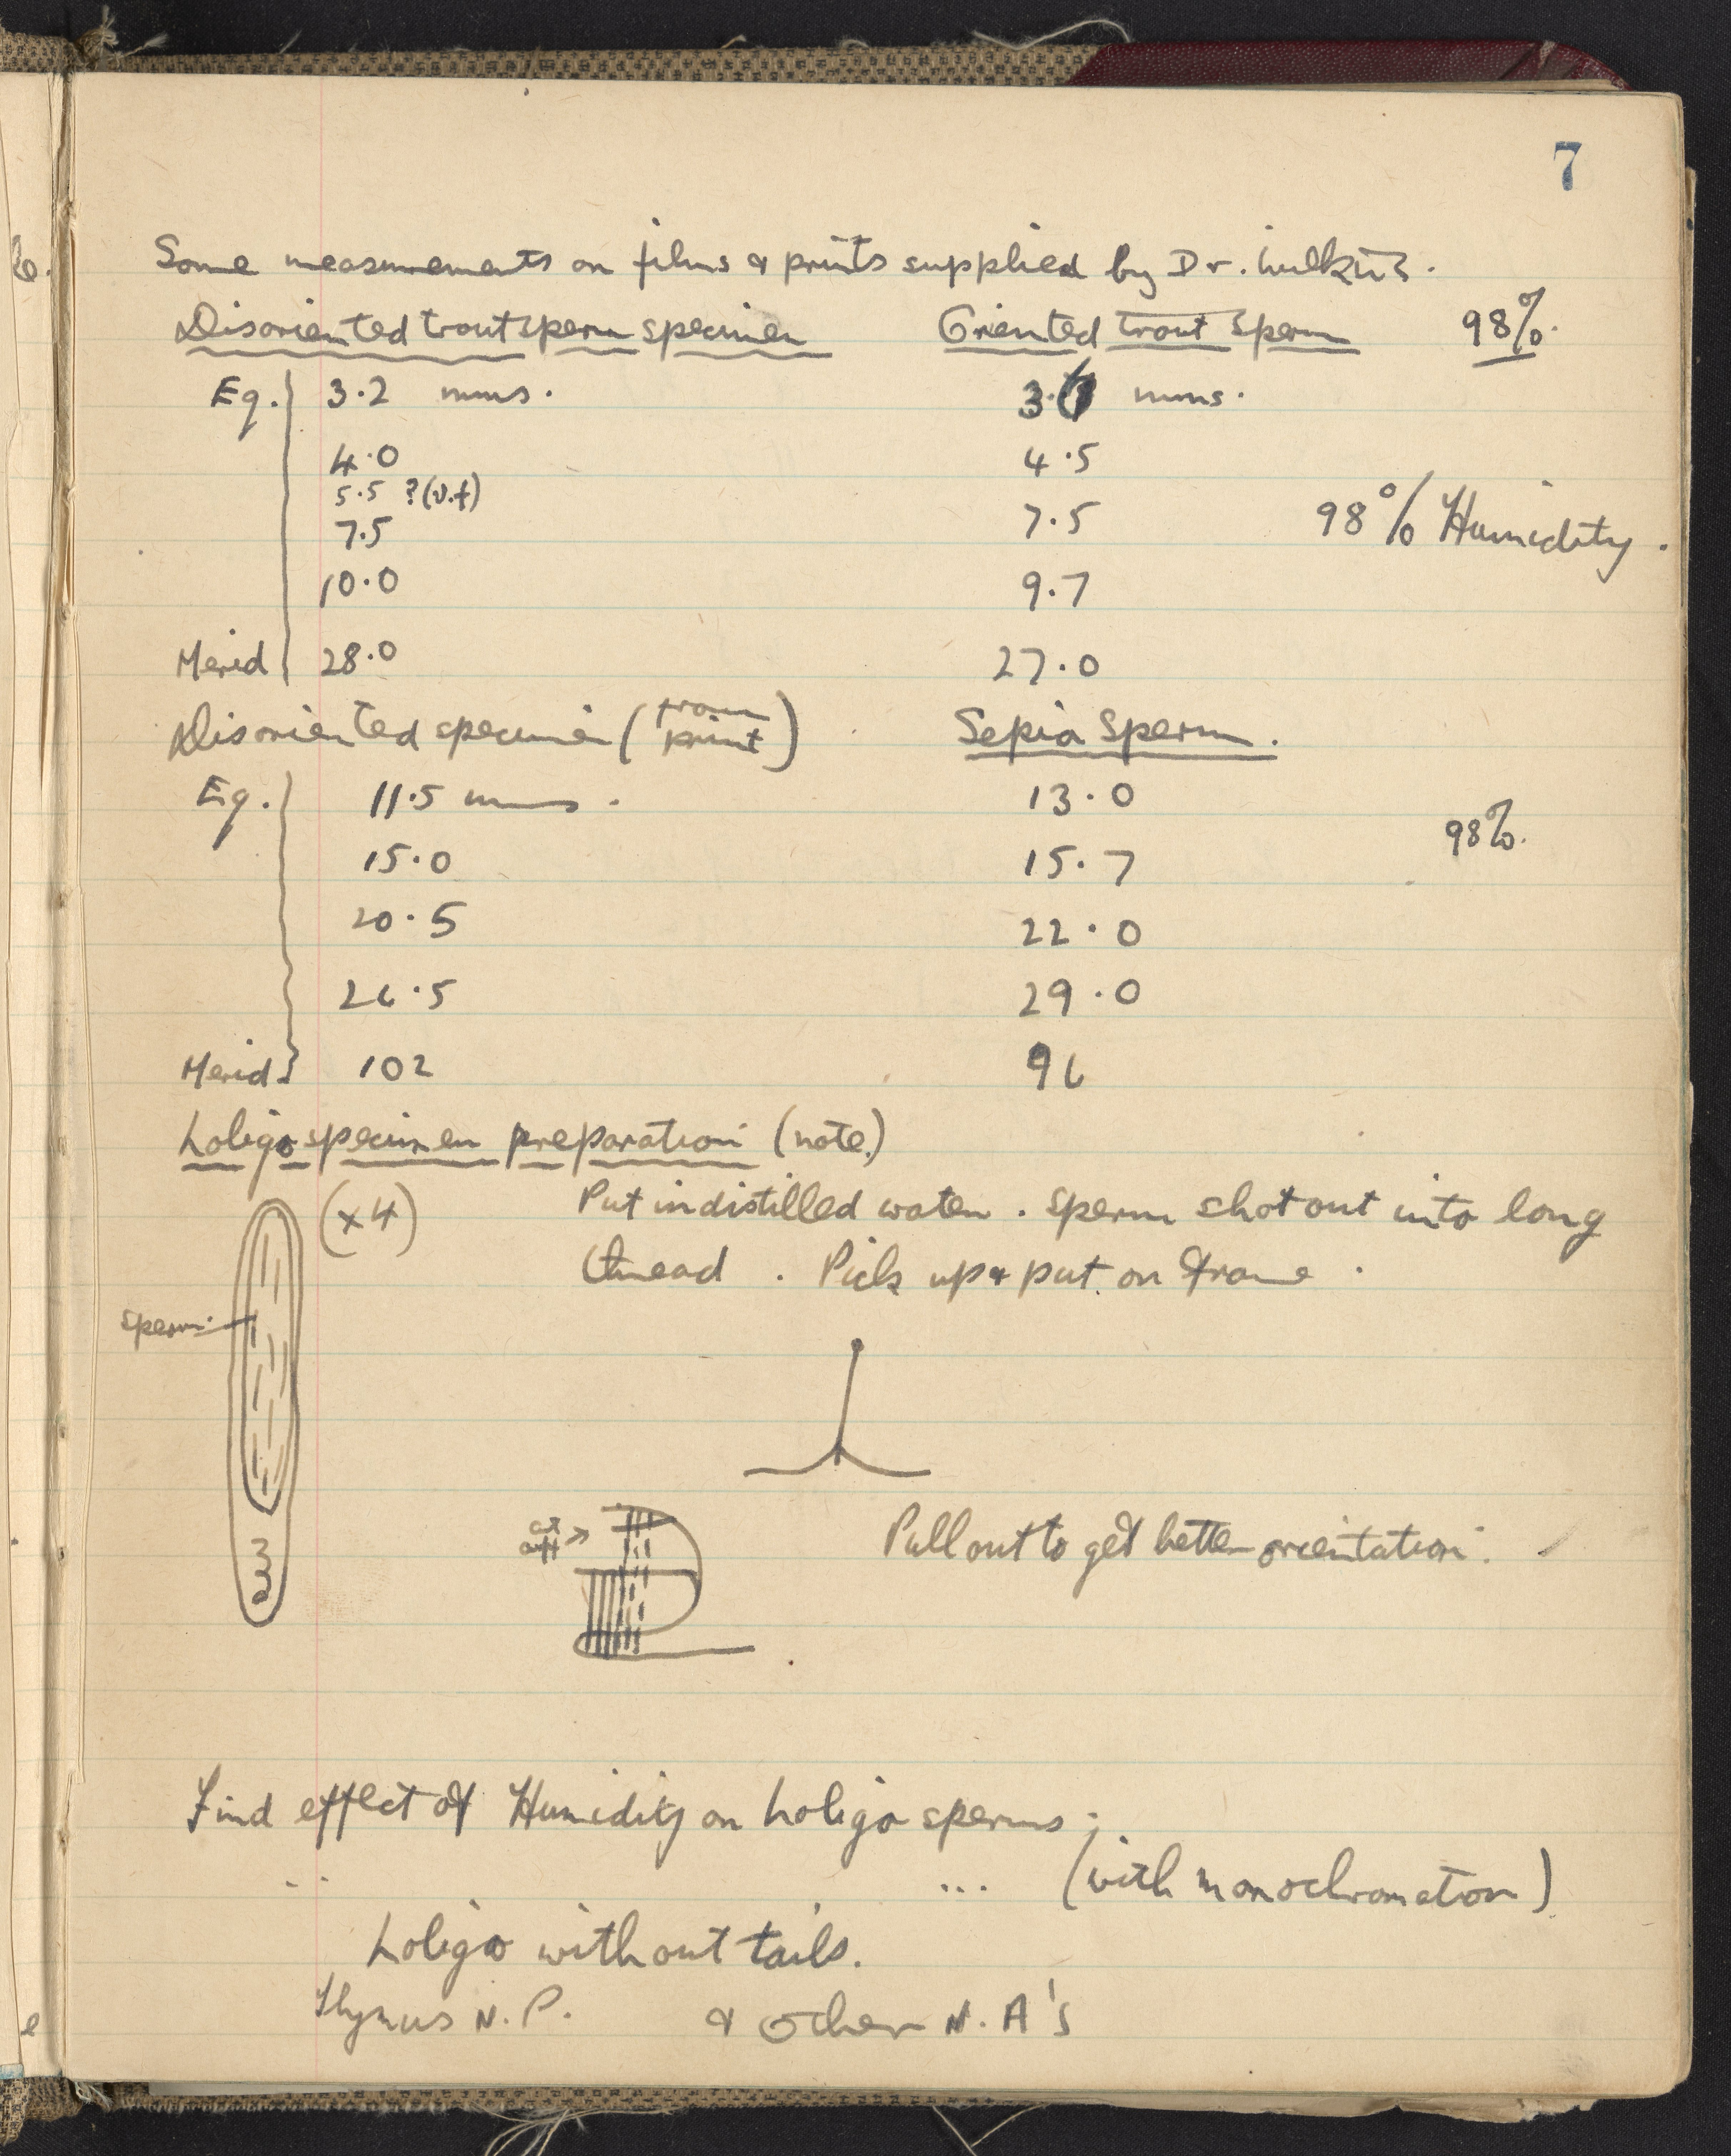 7
Some measurements on films & prints supplied by Dr. Wilkins.
Disoriented trout sperm specimen Oriented trout sperm 98%.
Eq. 3.2 mms. mms.
4.0 4.5
5.5 ?(v.f)
7.5 7.5 98% Humidity.
10.0 9.7
Merid 28.0 27.0
Disoriented specimen (from print) Sepia Sperm.
Eq. 11.5 mms. 13.0
15.0 15.7 98%.
20.5 22.0
26.5 29.0
Merid 102 96
Loligo specimen preparation (note.)
(x4) Put in distilled water. Sperm shot out into long
thread. Pick up & put on frame.
sperm
cut off → Pull out to get better orientation.
Find effect of Humidity on Loligo sperms;
.. ... (with monochromator)
Loligo without tails.
Thymus N.P. & other N.A's